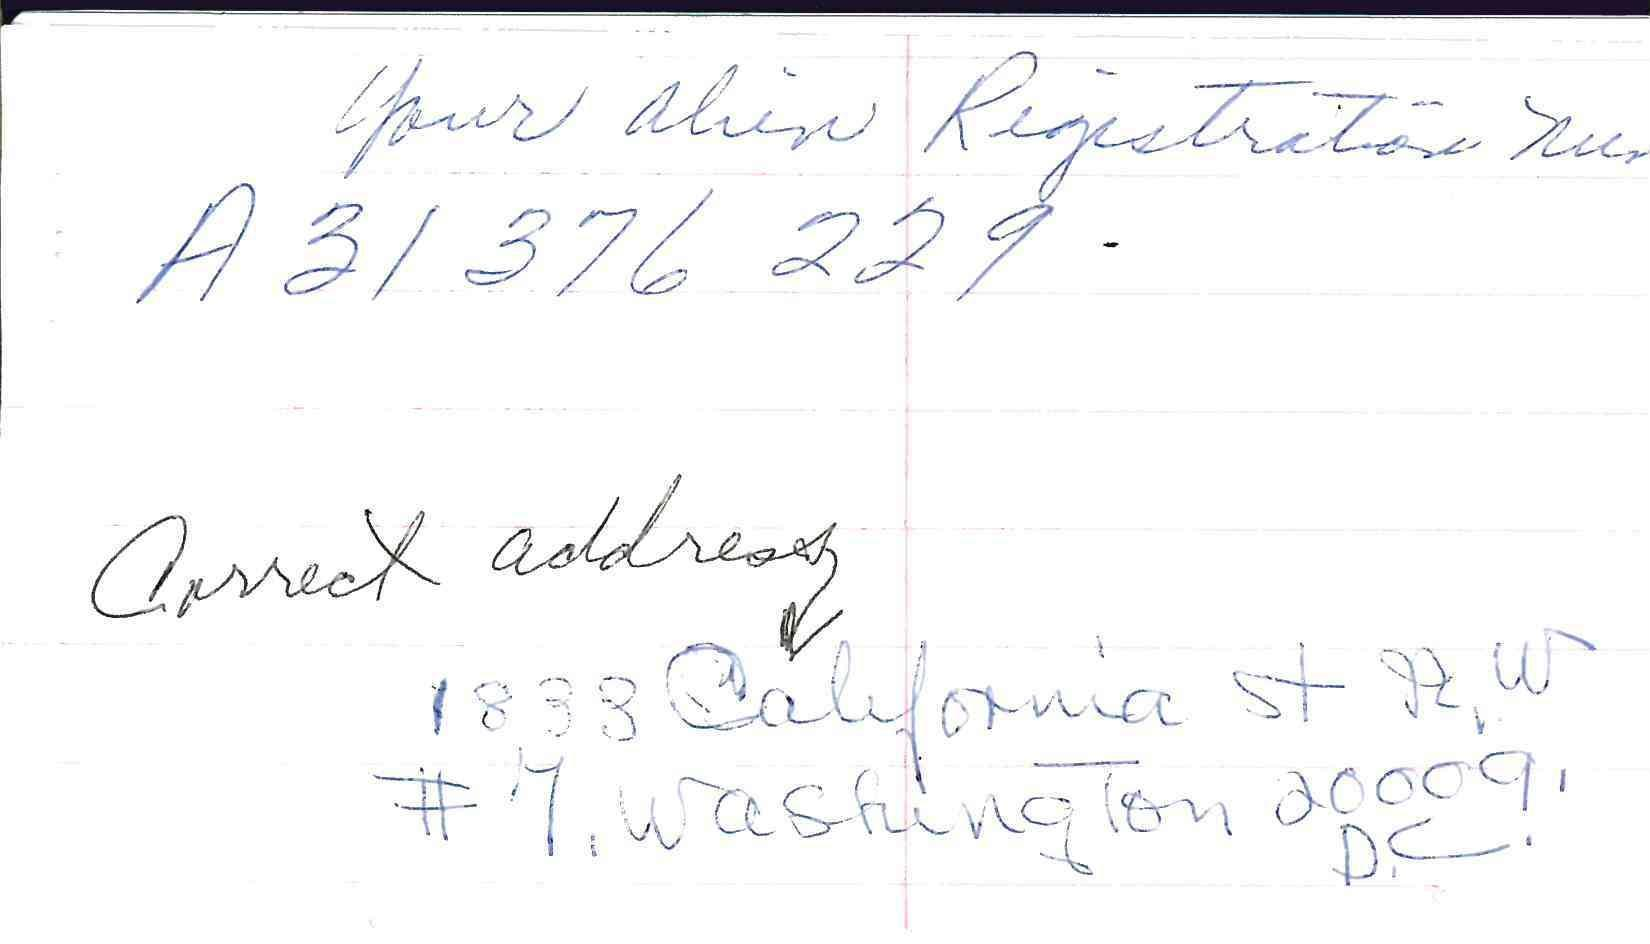 Your alien Registration Num
A 31 376 229.
Correct address
1833 California St N.W
# 7. Washington 20009.
D.C.